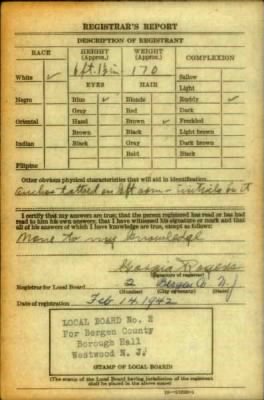 REGISTRAR'S REPORT
DESCRIPTION OF REGISTRANT
RACE HEIGHT (Approx.) WEIGHT (Approx.) COMPLEXION
6 ft. 1½ in 170
White ✓ Sallow
EYES HAIR Light
Negro Blue ✓ Blonde Ruddy ✓
Gray Red Dark
Oriental Hazel Brown ✓ Freckled
Brown Black Light brown
Indian Black Gray Dark brown
Bald Black
Filipino
Other obvious physical characteristics that will aid in identification
tattoed on left arm - initials on it
I certify that my answers are true; that the person registered has read or has had read to him his own answers; that I have witnessed his signature or mark and that all of his answers of which I have knowledge are true, except as follows:
None to my Knowledge
Rogers
(Signature of registrar)
Registrar for Local Board 2 Bergen Co N.J
(Number) (City or county) (State)
Date of registration Feb 14. 1942
LOCAL BOARD No. 2
For Bergen County
Borough Hall
Westwood N. J.
(STAMP OF LOCAL BOARD)
(The stamp of the Local Board having jurisdiction of the registrant shall be placed in the above space)